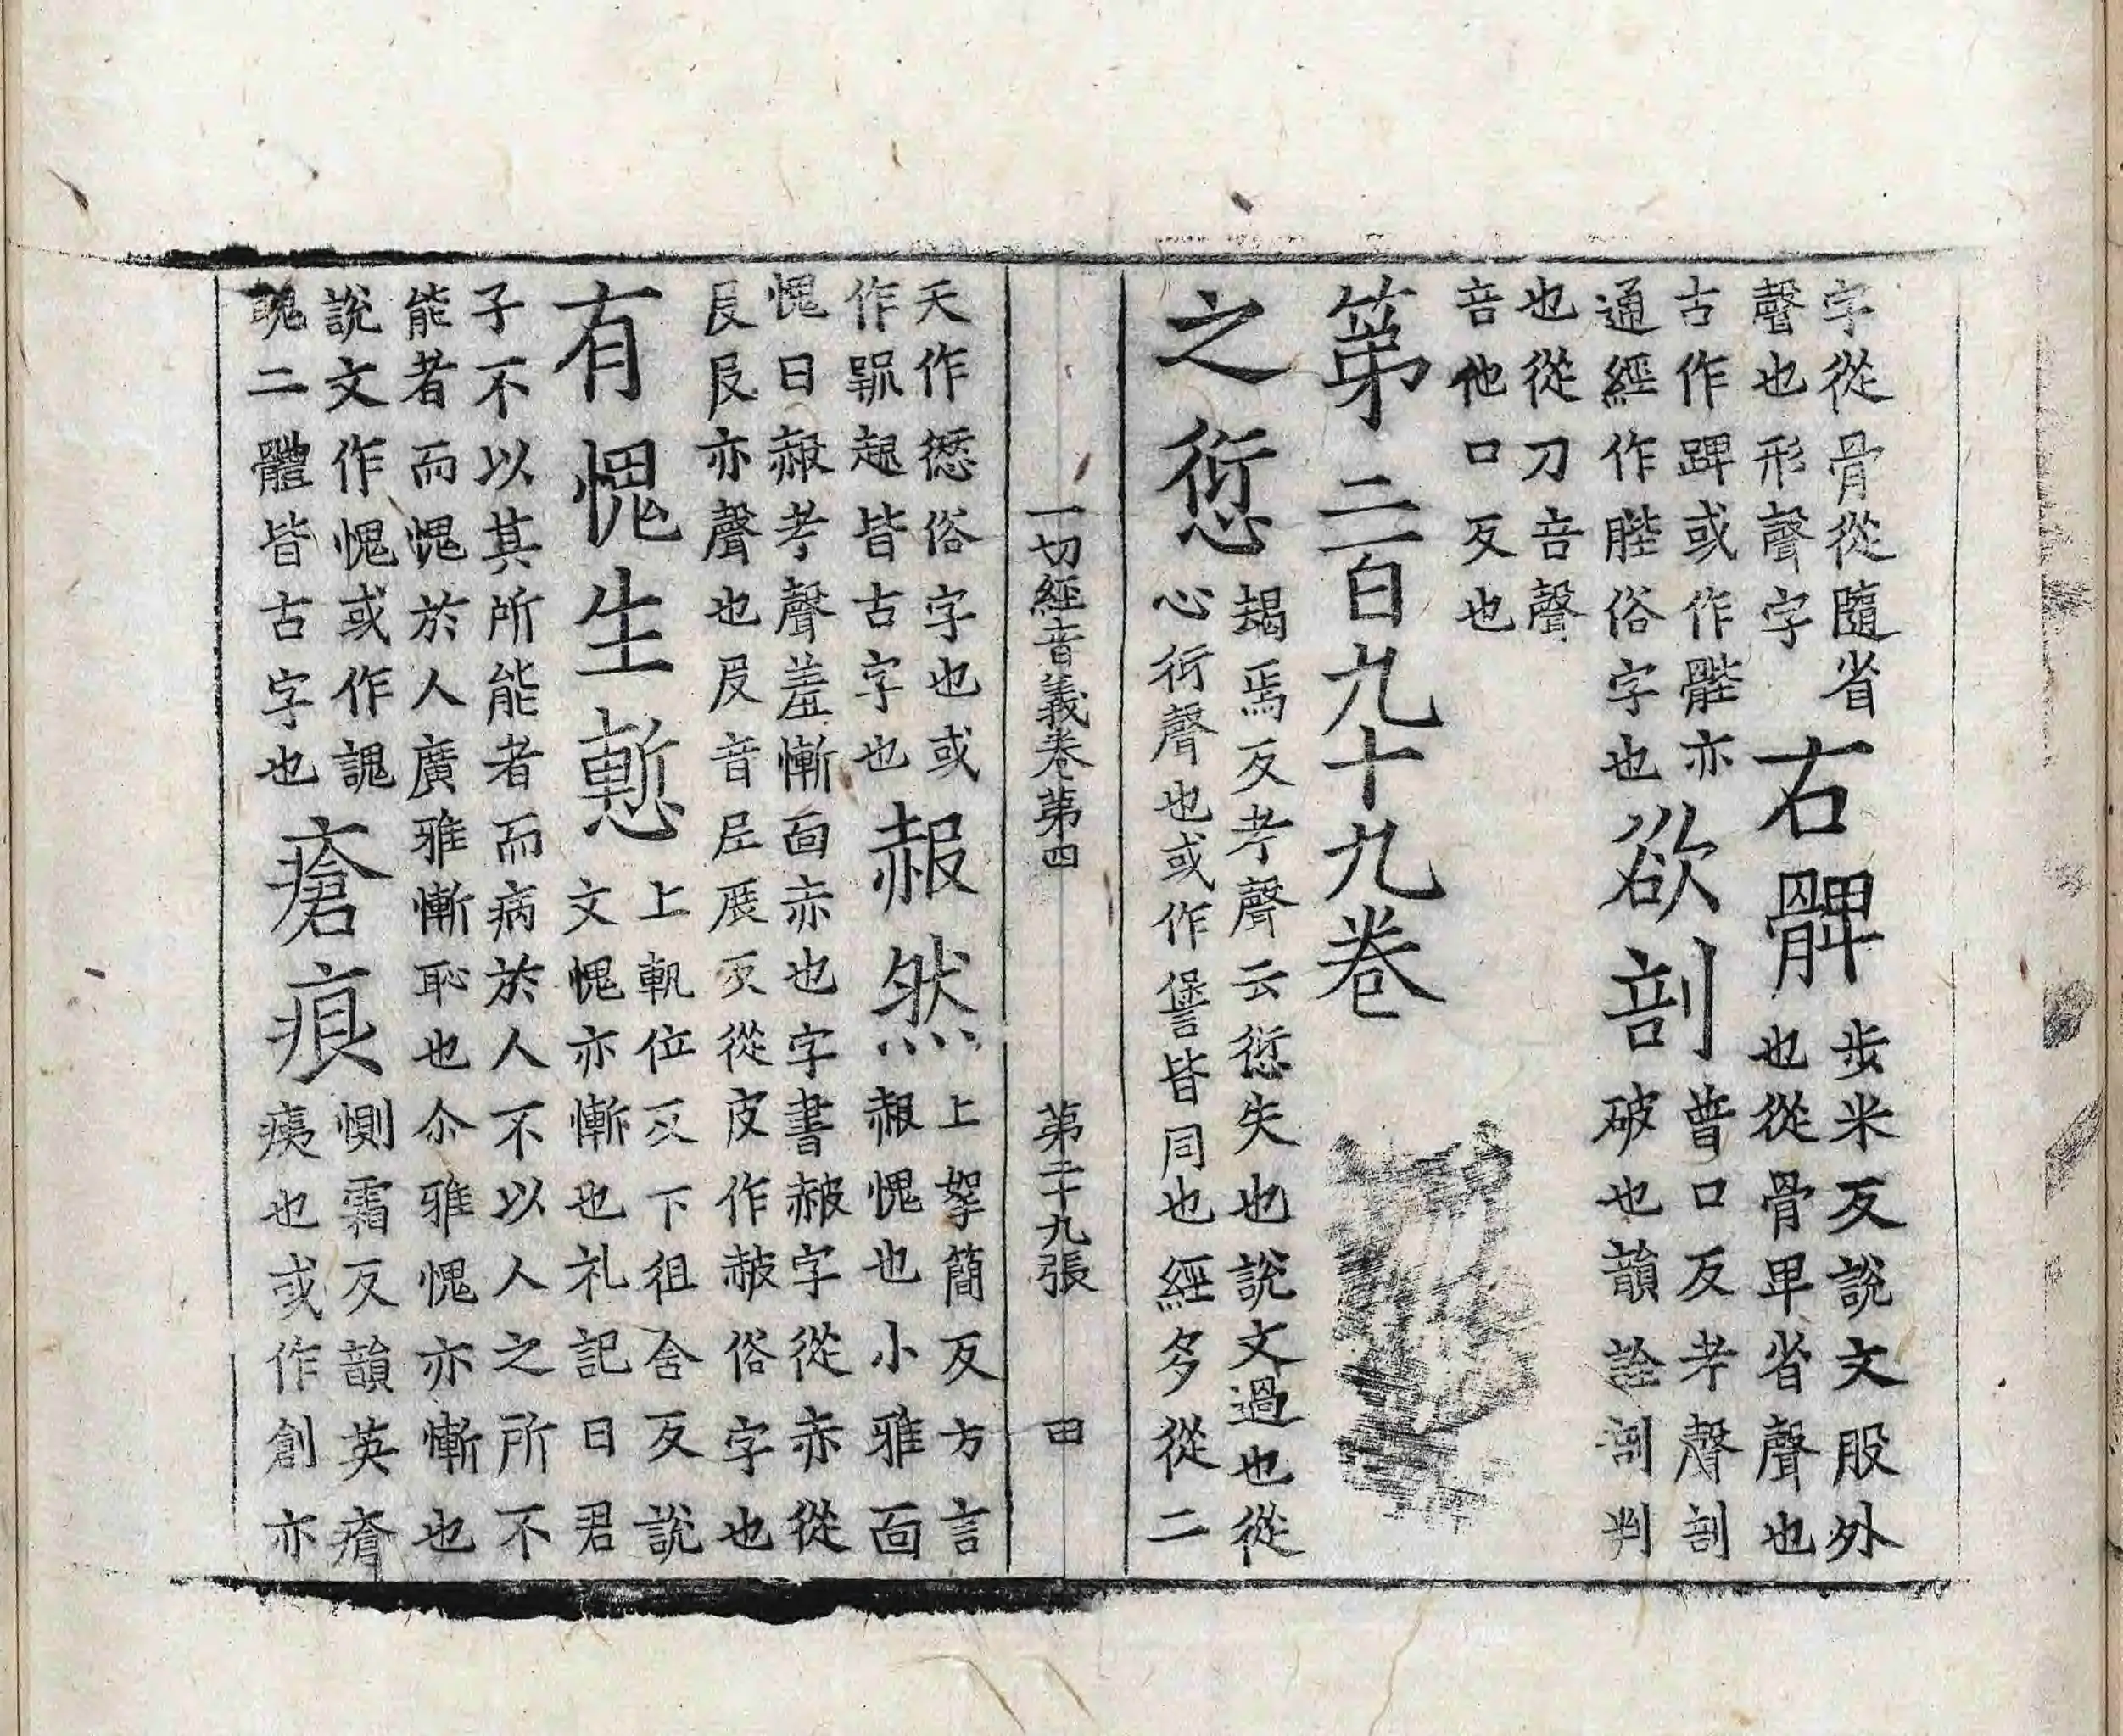 字從骨從隨省
聲也形聲字
右髀
步米反說文股外
也從骨卑省聲也
古作或作䯗亦
通經作䏶俗字也
欲剖
普口反考聲剖
破也韻詮剖判
也從刀咅聲
咅他口反也
第二百九十九卷
之愆
朅焉反考聲云愆失也說文過也從
心衍聲也或作諐皆同也經多從二
一切經音義卷第四　第二十九張　田
天作𠍴俗字也或
作皆古字也
赧然
上拏簡反方言
赧愧也小雅面
愧曰赧考聲羞慚面赤也字書赧字從赤從
𠬝𠬝亦聲也𠬝音尼展反從皮作赧俗字也
有愧生慙
上軌位反下徂含反說
文愧亦慚也礼記曰君
子不以其所能者而病於人不以人之所不
能者而愧於人廣雅慚恥也尒雅愧亦慚也
說文作愧或作謉
聭二體皆古字也
瘡痕
惻霜反韻英瘡
痍也或作創亦